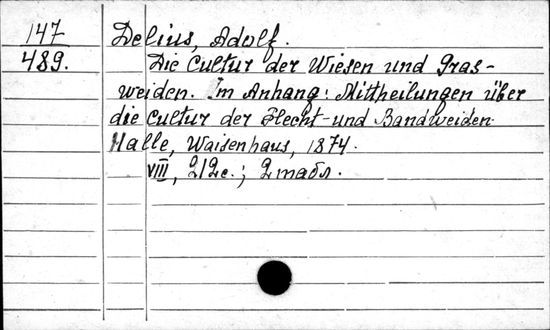 147 Delius, Adolf.
489. Die Cultur der Wiesen und Gras-
weiden. Im Anhang: Mittheilungen über
die Cultur der Flecht- und Bandweiden.
Halle, Waisenhaus, 1874.
VIII, 212 с.; 2 табл.